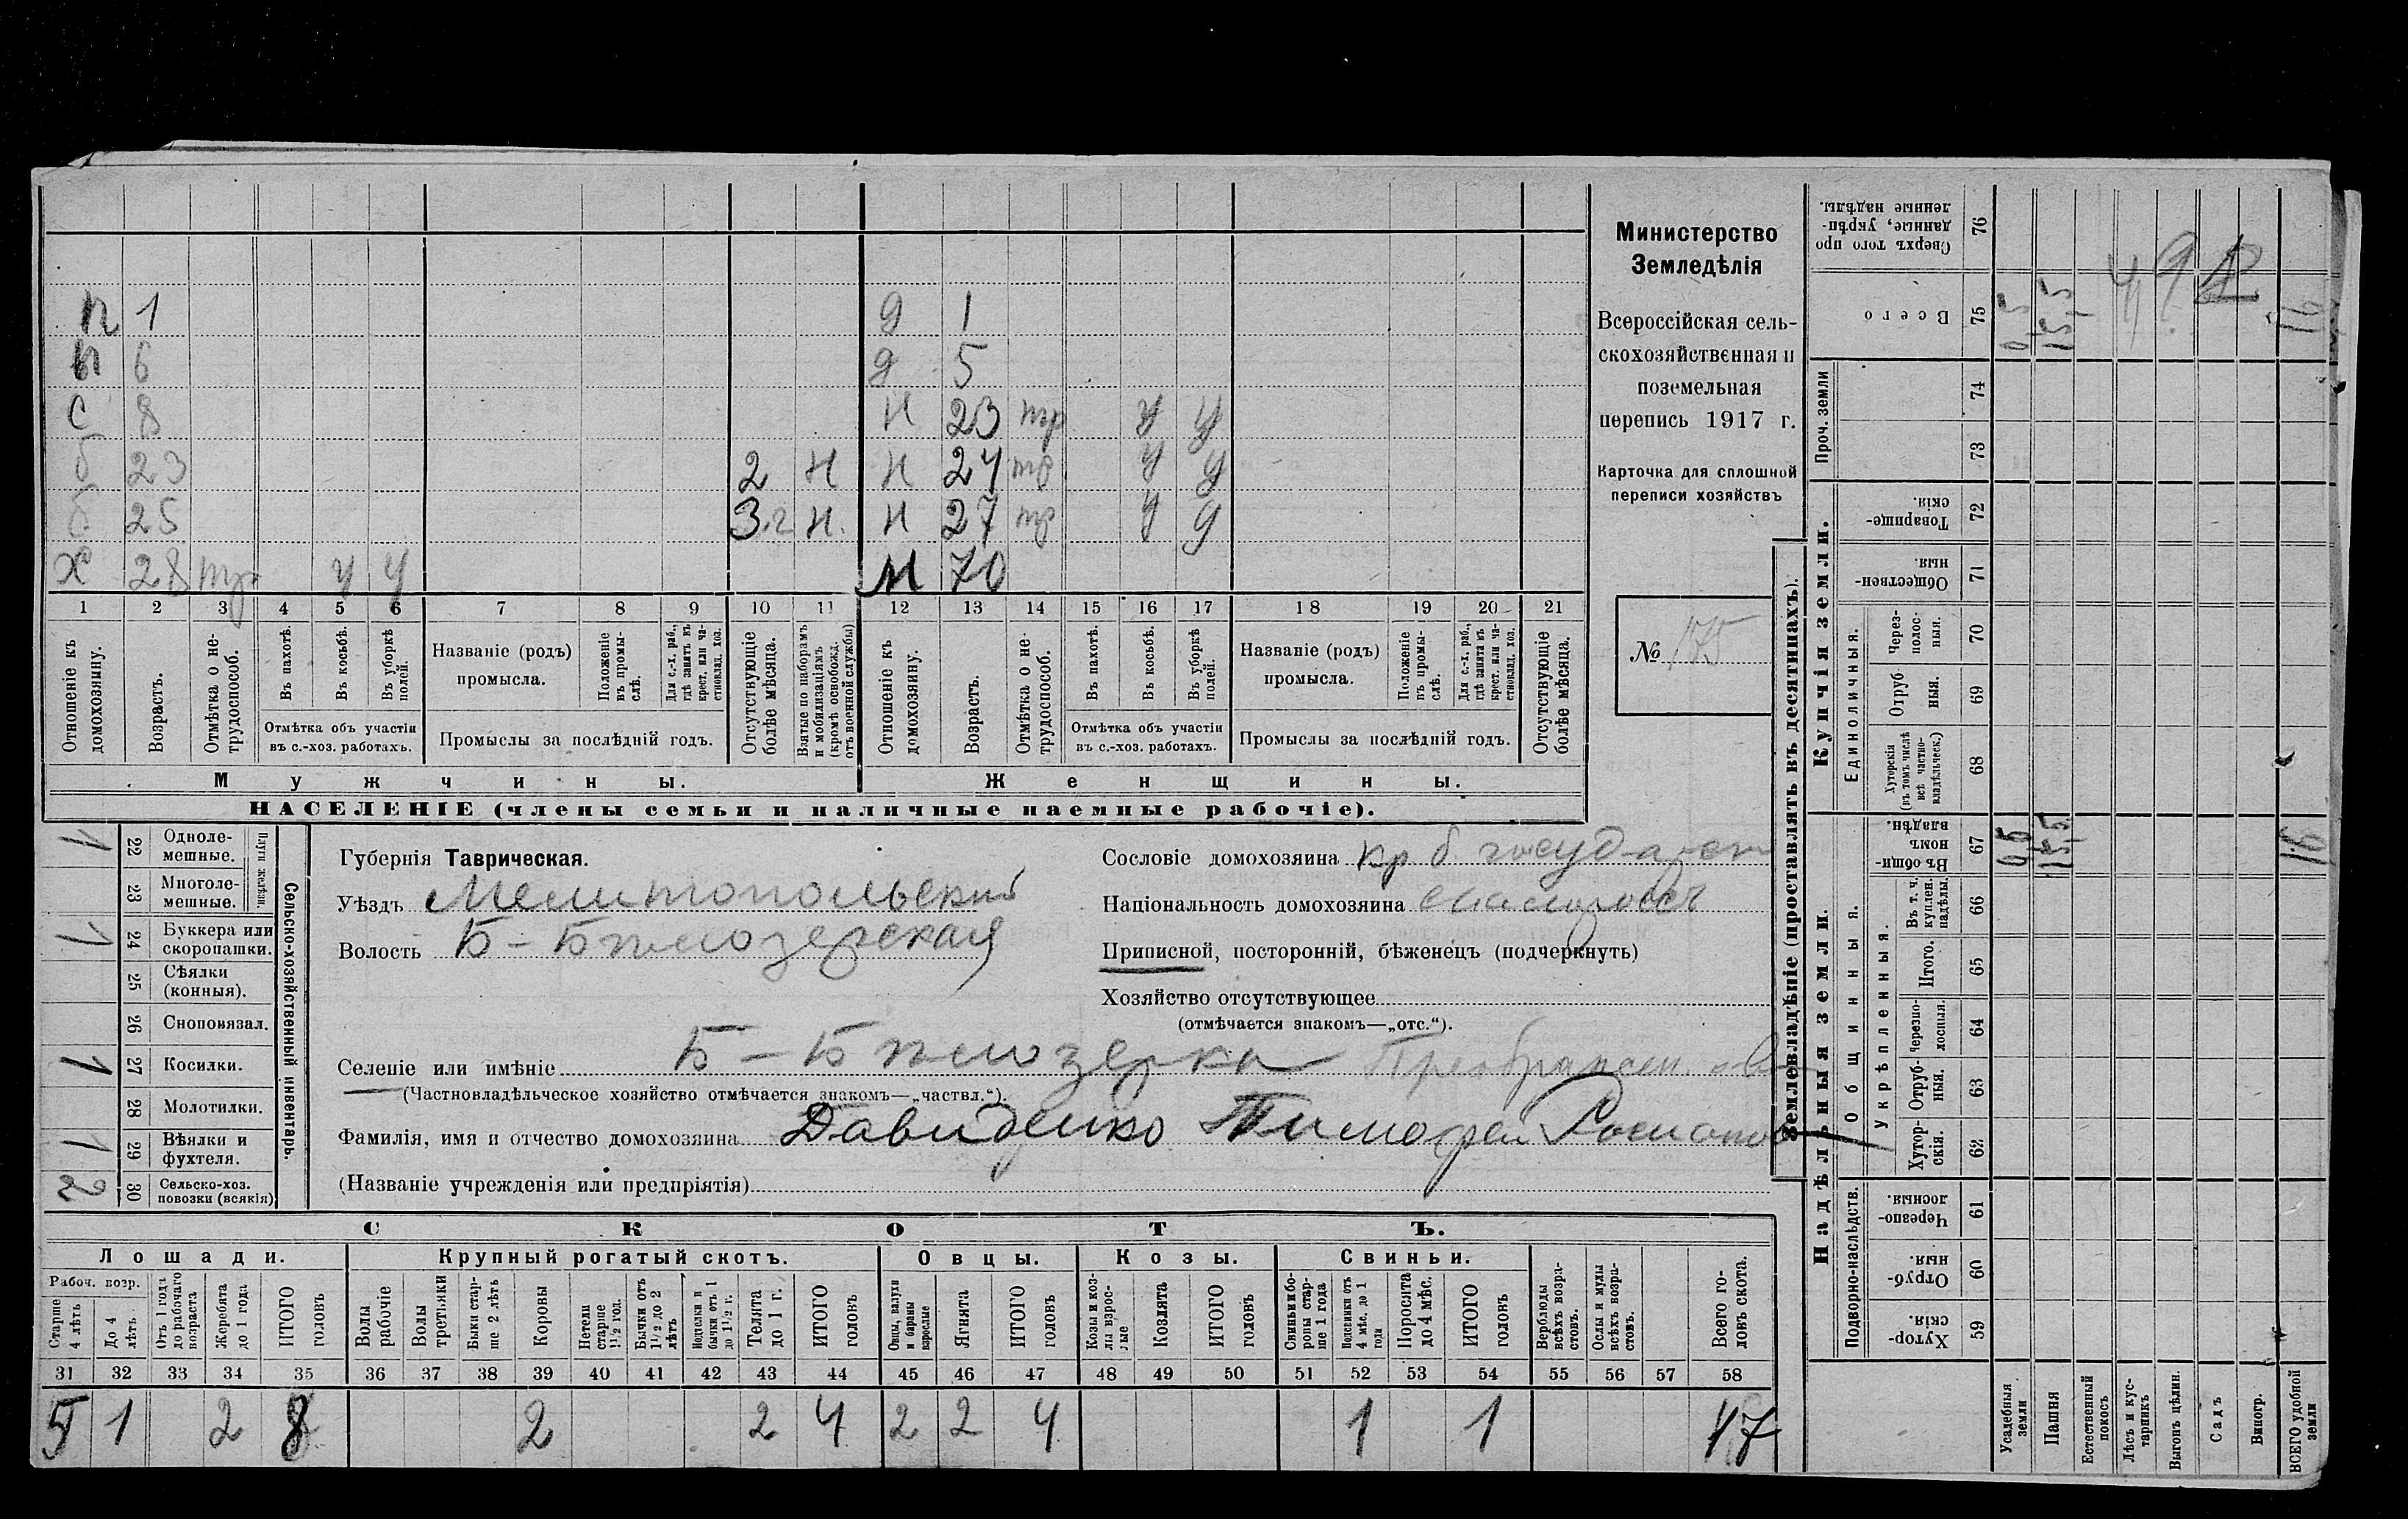 п 1 д 1
п 6 д 5
с 8 н 23 тр у у
б 23 2 н н 24 тр у у
б 25 3 г н. н 27 тр у у
х 28 тр у у м 70
1 2 3 4 5 6 7 8 9 10 11 12 13 14 15 16 17 18 19 20 21
Отношеніе къ домохозяину.
Возрастъ.
Отмѣтка о не-
трудоспособ.
Въ пахотѣ.
Въ косьбѣ.
Въ уборкѣ полей.
Отмѣтка объ участіи
въ с.-хоз. работахъ.
Названіе (родъ)
промысла.
Положеніе
въ промы-
слѣ.
Для с.-х. раб.,
гдѣ занятъ въ
крест. или ча-
стновлад. хоз.
Промыслы за послѣдній годъ.
Отсутствующіе
болѣе мѣсяца.
Взятые по наборамъ
и мобилизаціямъ
(кромѣ освобожд.
отъ военной службы)
Отношеніе къ
домохозяину.
Возрастъ.
Отмѣтка о не-
трудоспособ.
Въ пахотѣ.
Въ косьбѣ.
Въ уборкѣ
полей.
Отмѣтка объ участіи
въ с.-хоз. работахъ.
Названіе (родъ)
промысла.
Положеніе
въ промы-
слѣ.
Для с.-х. раб.,
гдѣ занята въ
крест. или ча-
стновлад. хоз.
Промыслы за послѣдній годъ.
Отсутствующіе
болѣе мѣсяца.
Мужчины. Женщины.
НАСЕЛЕНІЕ (члены семьи и наличные наемные рабочіе).
Министерство
Земледѣлія
Всероссійская сель-
скохозяйственная и
поземельная
перепись 1917 г.
Карточка для сплошной
переписи хозяйствъ
№ 175
Сельско-хозяйственный инвентарь.
Плуги желѣзн.
1 22 Одноле-
мешные.
23 Многоле-
мешные.
1 24 Буккера или
скоропашки.
25 Сѣялки
(конныя).
26 Сноповязал.
1 27 Косилки.
28 Молотилки.
1 29 Вѣялки и
фухтеля.
2 30 Сельско-хоз.
повозки (всякія)
Губернія Таврическая.
Уѣздъ Мелитопольскій
Волость Б-Бѣлозерская
Сословіе домохозяина кр б государств
Національность домохозяина
Приписной, посторонній, бѣженецъ (подчеркнуть)
Хозяйство отсутствующее
(отмѣчается знакомъ—„отс.“).
Селеніе или имѣніе Б-Бѣлозерка Преображен.
(Частновладѣльческое хозяйство отмѣчается знакомъ—„частвл.“).
Фамилія, имя и отчество домохозяина Давиденко Тимофей
(Названіе учрежденія или предпріятія)
СКОТЪ.
Лошади. Крупный рогатый скотъ. Овцы. Козы. Свиньи.
Рабоч. возр.
Старше
4 лѣтъ
До 4
лѣтъ.
Отъ 1 года
до рабочаго
возраста
Жеребята
до 1 года
ИТОГО
головъ
Волы
рабочіе
Волы
третьяки
Быки стар-
ше 2 лѣтъ
Коровы
Нетели
старше
1½ год.
Бычки отъ
1½ до 2
лѣтъ
Подтелки и
бычки отъ 1
до 1½ г.
Телята
до 1 г.
ИТОГО
головъ
Овцы, валухи
и бараны
взрослые
Ягнята
ИТОГО
головъ
Козы и коз-
лы взрос-
лые
Козлята
ИТОГО
головъ
Свиньи и бо-
ровы стар-
ше 1 года
Подсвинки отъ
4 мѣс. до 1
года
Поросята
до 4 мѣс.
ИТОГО
головъ
Верблюды
всѣхъ возра-
стовъ.
Ослы и мулы
всѣхъ возра-
стовъ.
Всего го-
ловъ скота.
31 32 33 34 35 36 37 38 39 40 41 42 43 44 45 46 47 48 49 50 51 52 53 54 55 56 57 58
5 1 2 8 2 2 4 2 2 4 1 1 17
Землевладѣніе (проставлять въ десятинахъ).
Надѣльныя земли. Купчія земли. Проч. земли
Подворно-наслѣдств.
Общинныя.
Укрѣпленныя.
Единоличныя.
Сверхъ того про-
данные, укрѣп-
ленные надѣлы. 76
Всего 75 0,5 15,5 16
74
73
Товарище-
скія. 72
Обществен-
ныя. 71
Через-
полос-
ныя. 70
Отруб-
ныя. 69
Хуторскія
(въ томъ числѣ
всѣ частно-
владѣльческ.) 68
Въ общин-
номъ
владѣн. 67 0,5 15,5 16
Въ т. ч.
куплен.
надѣлы. 66
Итого. 65
Черезпо-
лосныя. 64
Отруб-
ныя. 63
Хутор-
скія. 62
Черезпо-
лосныя. 61
Отруб-
ныя 60
Хутор-
скія. 59
Усадебныя
земли
Пашня
Естественный
покосъ
Лѣсъ и кус-
тарникъ
Выгонъ цѣлин.
Садъ
Виногр.
ВСЕГО удобной
земли